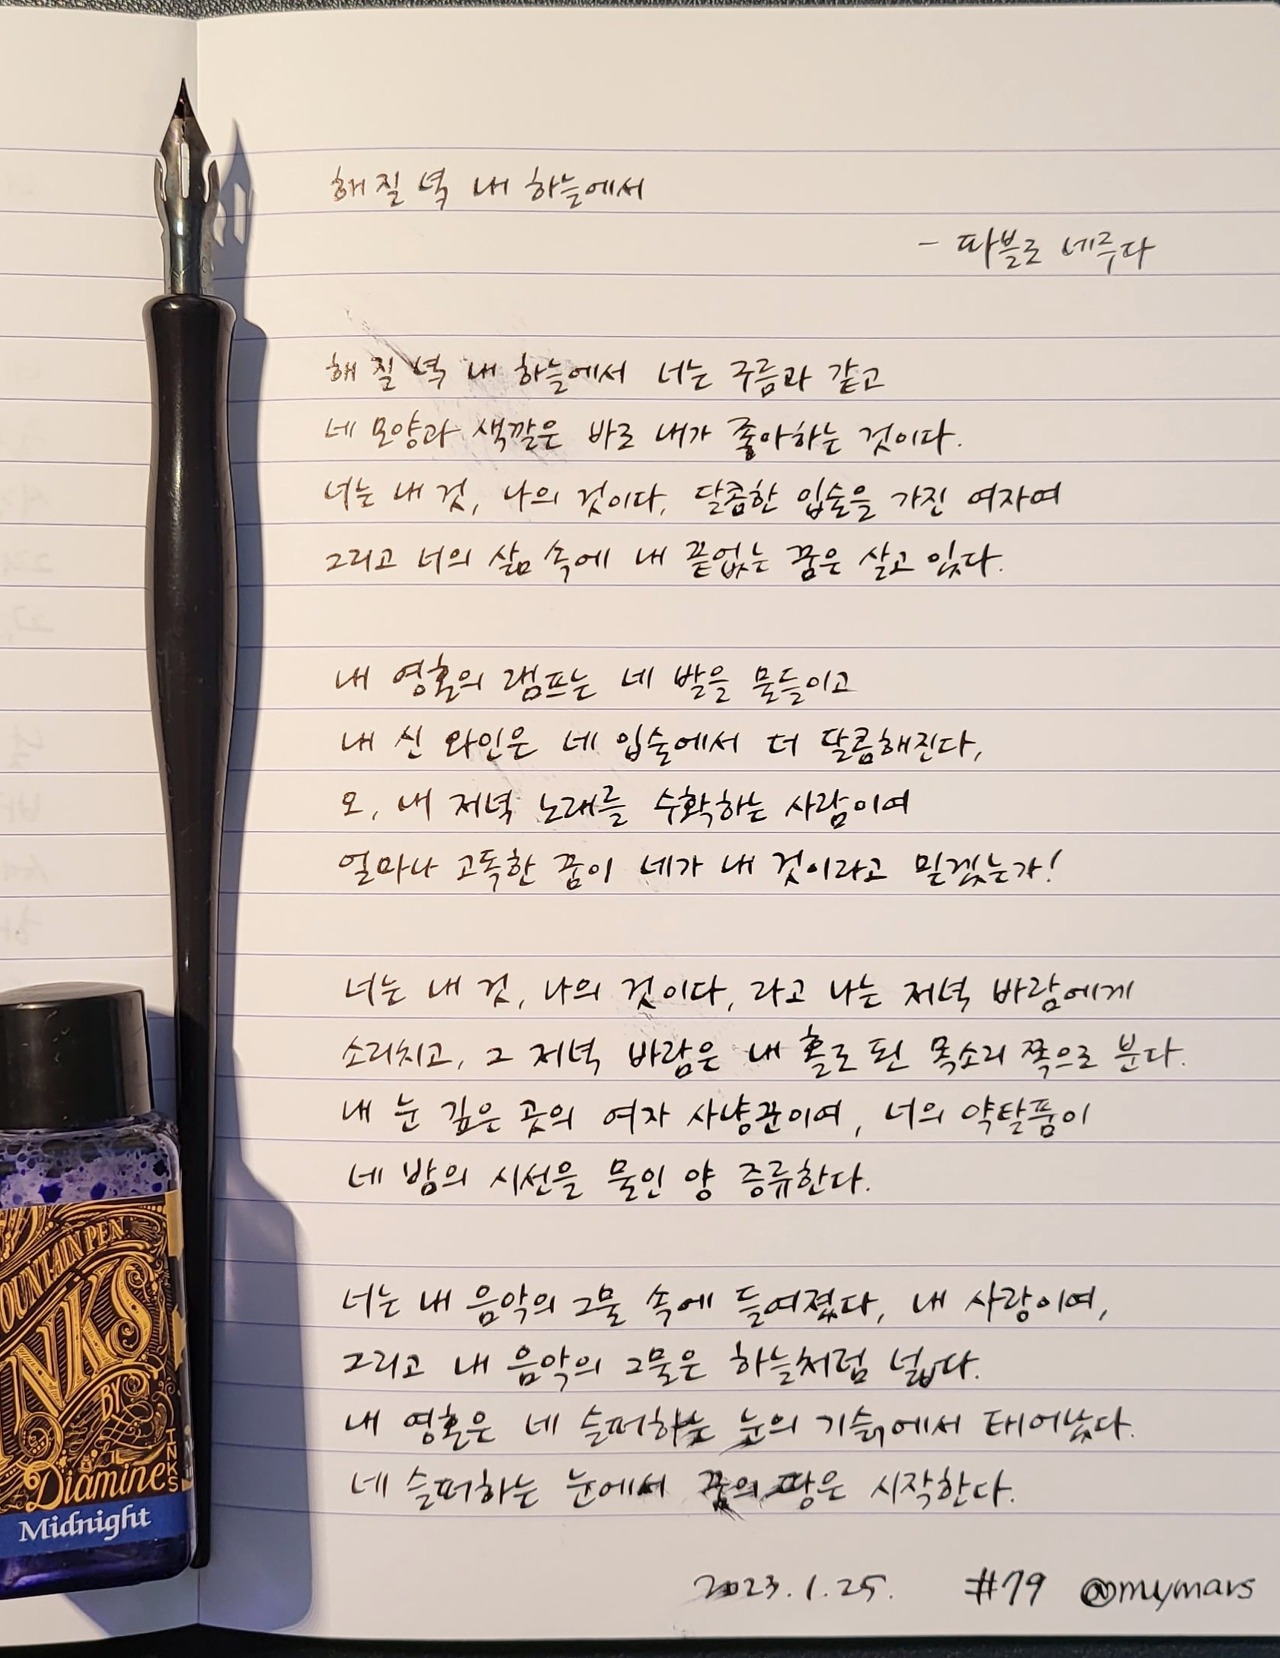 해질 녘 내 하늘에서
- 파블로 네루다
해 질 녘 내 하늘에서 너는 구름과 같고
네 모양과 색깔은 바로 내가 좋아하는 것이다.
너는 내 것, 나의 것이다, 달콤한 입술을 가진 여자여
그리고 너의 삶 속에 내 끝없는 꿈은 살고 있다.
내 영혼의 램프는 네 발을 물들이고
내 신 와인은 네 입술에서 더 달콤해진다,
오, 내 저녁 노래를 수확하는 사람이여
얼마나 고독한 꿈이 네가 내 것이라고 믿겠는가!
너는 내 것, 나의 것이다, 라고 나는 저녁 바람에게
소리치고, 그 저녁 바람은 내 홀로 된 목소리 쪽으로 분다.
내 눈 깊은 곳의 여자 사냥꾼이여, 너의 약탈품이
네 밤의 시선을 물인 양 증류한다.
너는 내 음악의 그물 속에 들여졌다, 내 사랑이여,
그리고 내 음악의 그물은 하늘처럼 넓다.
내 영혼은 네 슬퍼하는 눈의 기슭에서 태어났다.
네 슬퍼하는 눈에서 꿈의 땅은 시작한다.
2023.1.25. #79 @mymars
OUNTAIN PEN
INKS
BY
Diamine
INKS
Midnight